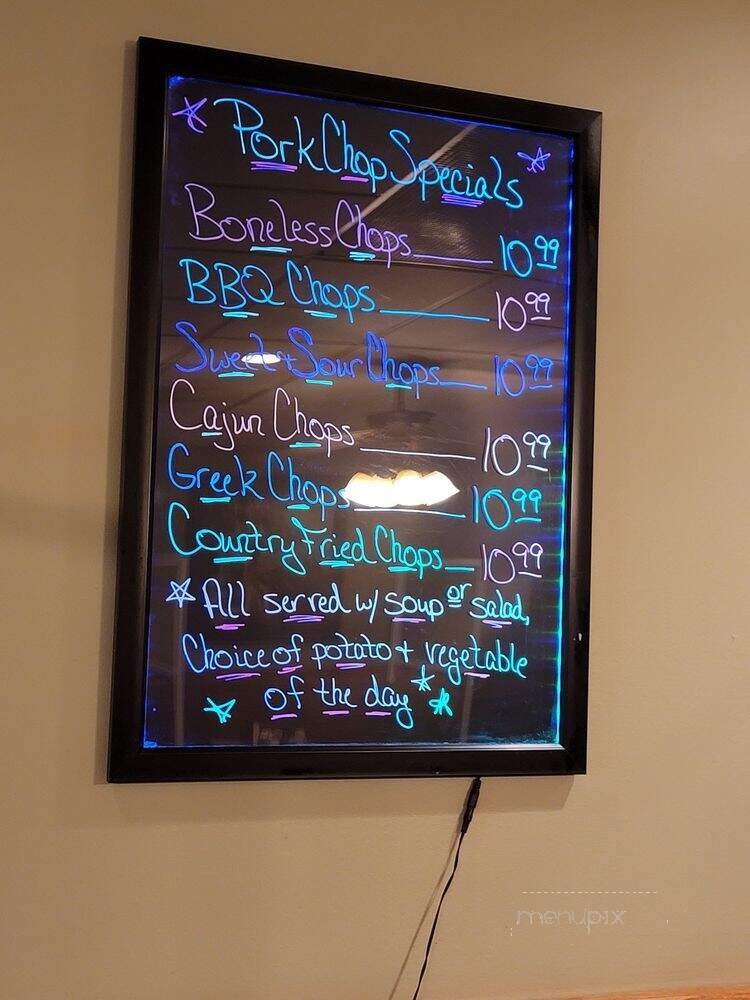 Pork Chop Specials
Boneless Chops 10.99
BBQ Chops 10.99
Sweet + Sour Chops 10.99
Cajun Chops 10.99
Greek Chops 10.99
Country Fried Chops 10.99
All served w/ soup or salad,
Choice of potato + vegetable
of the day
menupix